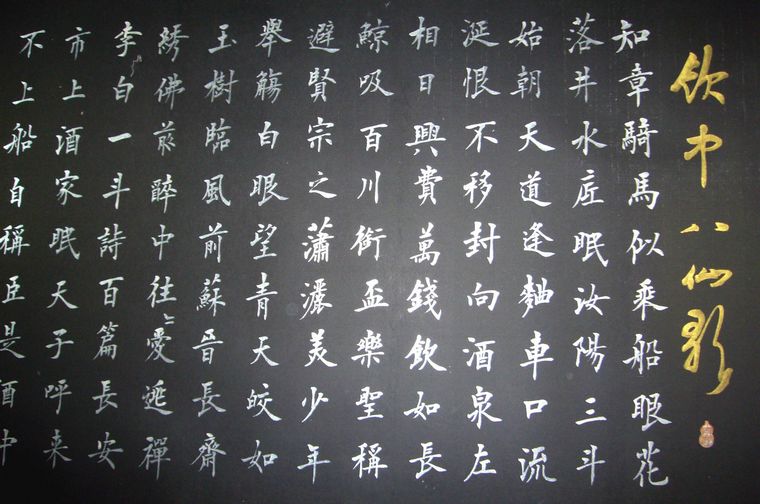 飲中八仙歌
知章騎馬似乘船眼花
落井水底眠汝陽三斗
始朝天道逢麯車口流
涎恨不移封向酒泉左
相日興費萬錢飲如長
鯨吸百川銜盃樂聖稱
避賢宗之瀟灑美少年
舉觴白眼望青天皎如
玉樹臨風前蘇晉長齋
綉佛前醉中往々愛逃禪
李白一斗詩百篇長安
市上酒家眠天子呼来
不上船自稱臣是酒中